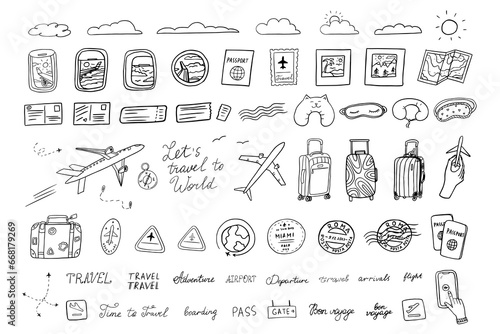 PASSPORT
Travel
Let's
travel to
World
MIAMI
ROMA
ROMA
PASSPORT
PASSPORT
TRAVEL TRAVEL Adventure AIRPORT Departure arrivals flight
TRAVEL
Time to Travel boarding PASS GATE Bon voyage bon
voyage
Adobe Stock | #668179269